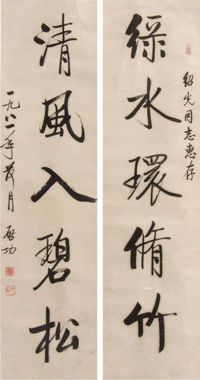 绍先同志惠存
綠水環脩竹
清風入碧松
一九八一年荷月 启功